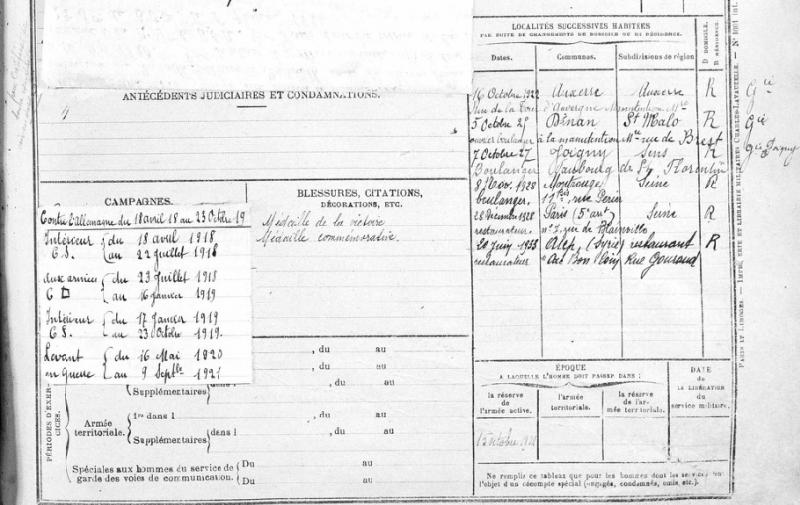 ANTÉCÉDENTS JUDICIAIRES ET CONDAMNATIONS.
CAMPAGNES.
Contre l'Allemagne du 18 avril 18 au 23 Octobre 19
Intérieur du 18 avril 1918
C.S. au 22 Juillet 1918
aux armées du 23 Juillet 1918
C D au 16 janvier 1919
Intérieur du 17 Janvier 1919
C S. au 23 Octobre 1919.
Levant du 16 Mai 1920
en guerre au 9 Septbre 1921
BLESSURES, CITATIONS,
DÉCORATIONS, ETC.
Médaille de la victoire
Médaille commémorative.
PÉRIODES D'EXERCICES.
Supplémentaires
, du au
, du au
Armée territoriale.
1re dans l , du au
Supplémentaires dans l , du au
Spéciales aux hommes du service de
garde des voies de communication.
Du au
Du au
LOCALITÉS SUCCESSIVES HABITÉES
PAR SUITE DE CHANGEMENTS DE DOMICILE OU DE RÉSIDENCE.
Dates. Communes. Subdivisions de région D DOMICILE. R RÉSIDENCE.
16 Octobre 1922 Auxerre Auxerre R Gie
Rue de la Tour d'Auvergne Manutention Mre
5 Octobre 25 Dinan St Malo R Gie
ouvrier boulanger à la manutention Mre rue de Brest
7 Octobre 27 Joigny Sens R Gie Joigny
Boulanger Faubourg de St Florentin
8 1928 Montrouge Seine R
boulanger. rue Périer
28 Décembre 1928 Paris (5e arrt) Seine R
restaurateur no 7, rue de Blainville
20 Juin 1933 Alep (Syrie) restaurant R
restaurateur "Au Bon Coin" Rue Gouraud
ÉPOQUE
A LAQUELLE L'HOMME DOIT PASSER DANS :
la réserve de l'armée active.
l'armée territoriale.
la réserve de l'armée territoriale.
DATE
DE LA LIBÉRATION
du service militaire.
Ne remplir ce tableau que pour les hommes dont les services font
l'objet d'un décompte spécial (engagés, condamnés, omis, etc.).
PARIS ET LIMOGES. — IMPR. ET LIBRAIRIE MILITAIRES CHARLES-LAVAUZELLE.